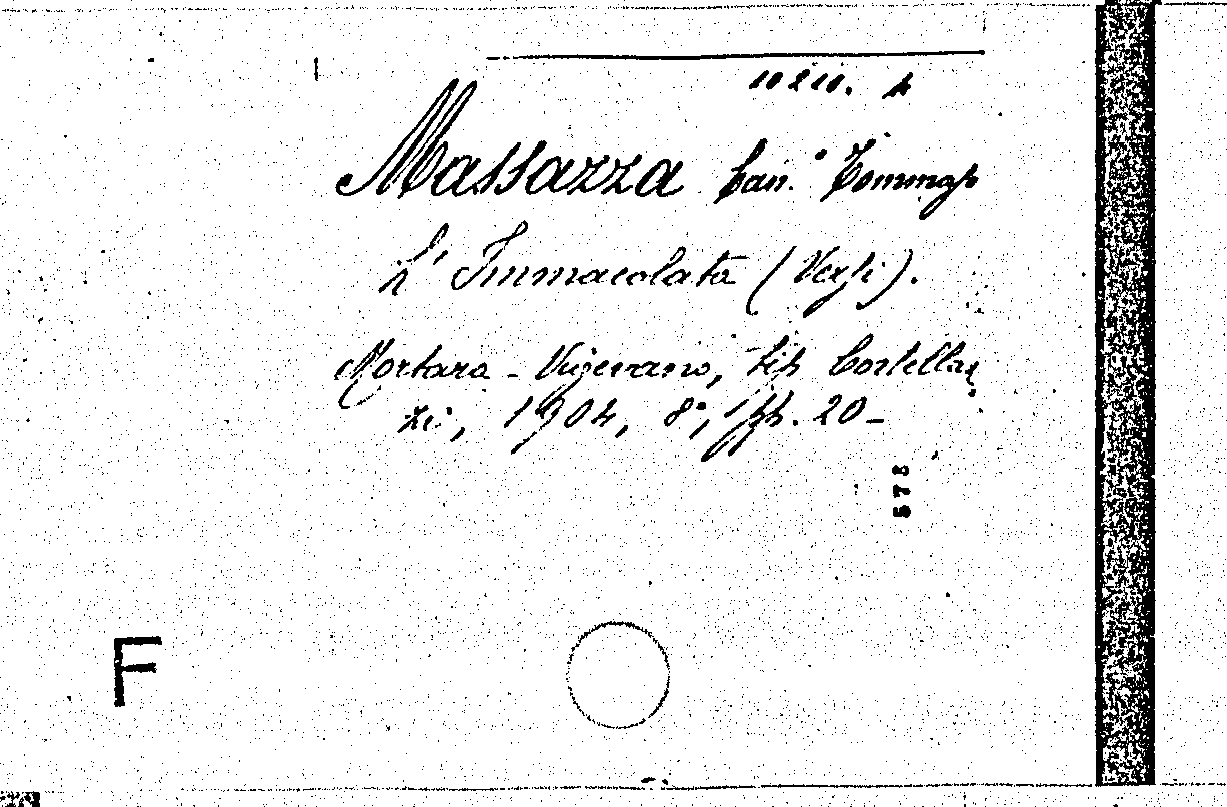 10210. 4
Massazza Can.° Tommaso
L' Immacolata (Versi).
Mortara - Vigevano, tip Cortellaz
zi, 1904, 8°, pp. 20-
573
F